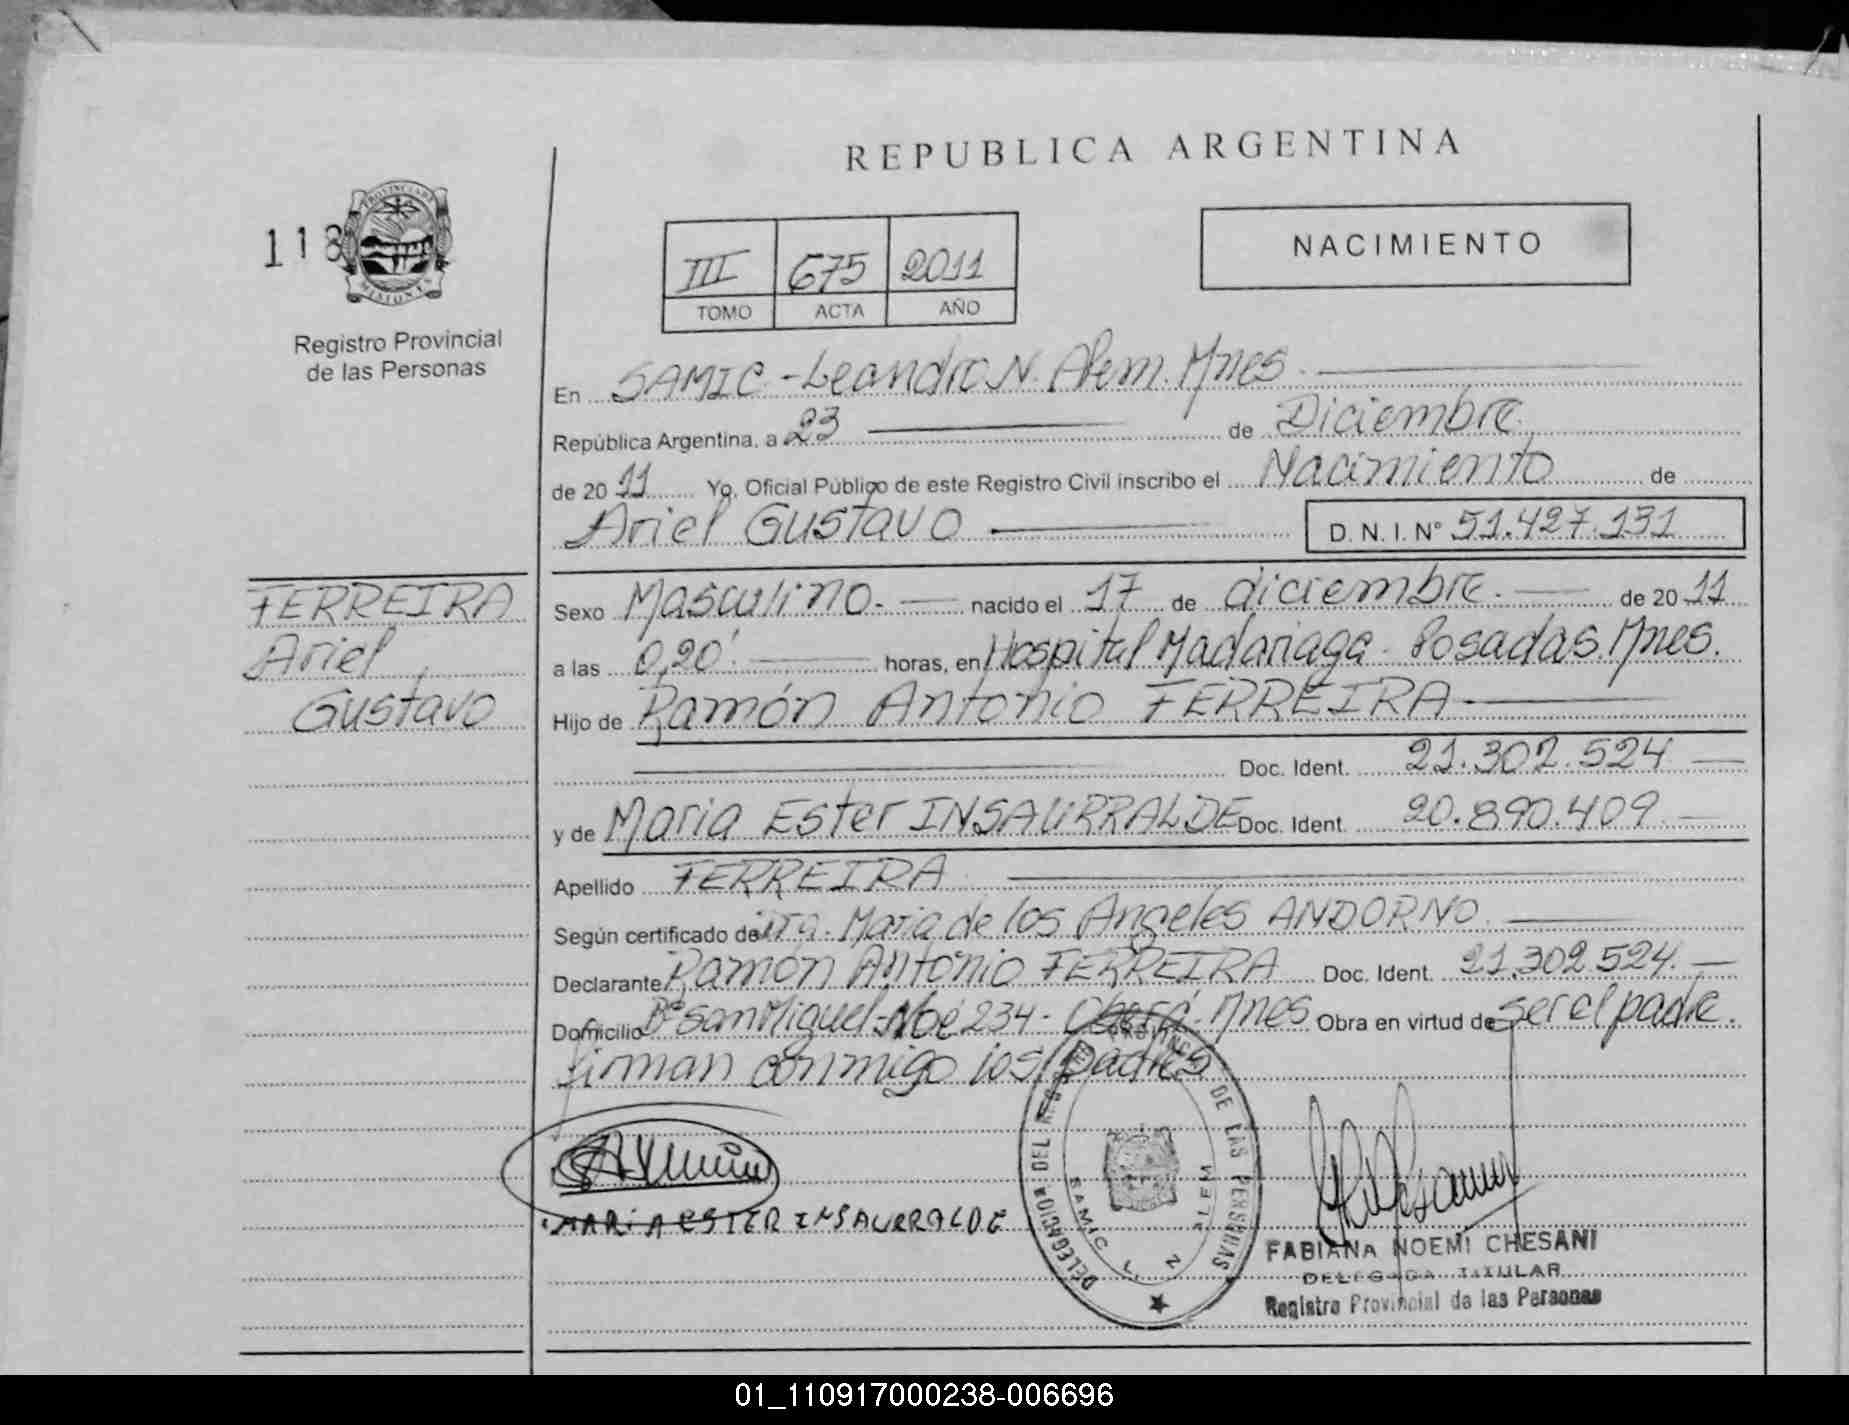 REPUBLICA ARGENTINA
118
PROVINCIA DE
MISIONES
Registro Provincial
de las Personas
III 675 2011
TOMO ACTA AÑO
NACIMIENTO
En SAMIC - Leandro N. Alem. Mnes.
República Argentina, a 23 de Diciembre
de 2011 Yo, Oficial Público de este Registro Civil inscribo el Nacimiento de
Ariel Gustavo D. N. I. Nº 51.427.131
FERREIRA
Ariel
Gustavo
Sexo Masculino. nacido el 17 de diciembre. de 2011
a las 0,20'. horas, en Hospital Madariaga - Posadas. Mnes.
Hijo de Ramón Antonio FERREIRA
Doc. Ident. 21.302.524
y de Maria Ester INSAURRALDE Doc. Ident. 20.890.409
Apellido FERREIRA
Según certificado de Dra. Maria de los Angeles ANDORNO.
Declarante Ramón Antonio FERREIRA Doc. Ident. 21.302.524.
Domicilio Bº San Miguel - Noé 234 - Oberá - Mnes Obra en virtud de ser el padre.
firman conmigo los padres
MARIA ESTER INSAURRALDE
DELEGACION DEL REGISTRO PROVINCIAL DE LAS PERSONAS
SAMIC L. N. ALEM
FABIANA NOEMI CHESANI
DELEGADA TITULAR
Registro Provincial de las Personas
01_110917000238-006696